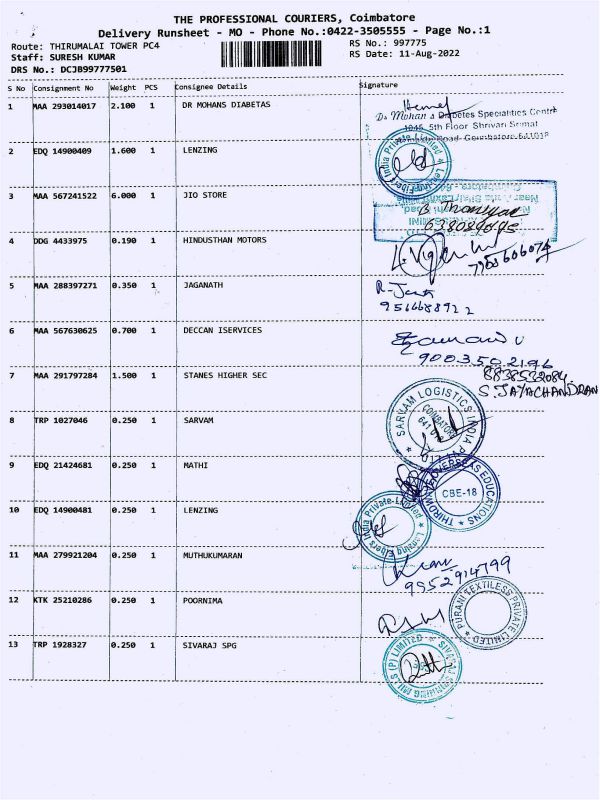 THE PROFESSIONAL COURIERS, Coimbatore
Delivery Runsheet - MO - Phone No.:0422-3505555 - Page No.:1
Route: THIRUMALAI TOWER PC4
RS No.: 997775
Staff: SURESH KUMAR
RS Date: 11-Aug-2022
DRS No.: DCJB99777501
S No Consignment No Weight PCS Consignee Details Signature
1 MAA 293014017 2.100 1 DR MOHANS DIABETAS
Dr Mohan's Diabetes Specialities Centre
1045, 5th Floor Shrivari Srimat
Road Coimbatore-641018
2 EDQ 14900409 1.600 1 LENZING
Lenzing Fibers India Private Limited
3 MAA 567241522 6.000 1 JIO STORE
4 DDG 4433975 0.190 1 HINDUSTHAN MOTORS
5 MAA 288397271 0.350 1 JAGANATH
6 MAA 567630625 0.700 1 DECCAN ISERVICES
9003502196
7 MAA 291797284 1.500 1 STANES HIGHER SEC
8838532084
S. JAYACHANDRAN
8 TRP 1027046 0.250 1 SARVAM
SARVAM LOGISTICS INDIA
COIMBATORE
9 EDQ 21424681 0.250 1 MATHI
OVERSEAS EDUCATIONS
CBE-18
10 EDQ 14900481 0.250 1 LENZING
Lenzing Fibers India Private Limited
11 MAA 279921204 0.250 1 MUTHUKUMARAN
9952914799
12 KTK 25210286 0.250 1 POORNIMA
PURANI TEXTILESS PRIVATE LIMITED
13 TRP 1928327 0.250 1 SIVARAJ SPG
SIVARAJ SPINNING MILLS (P) LIMITED